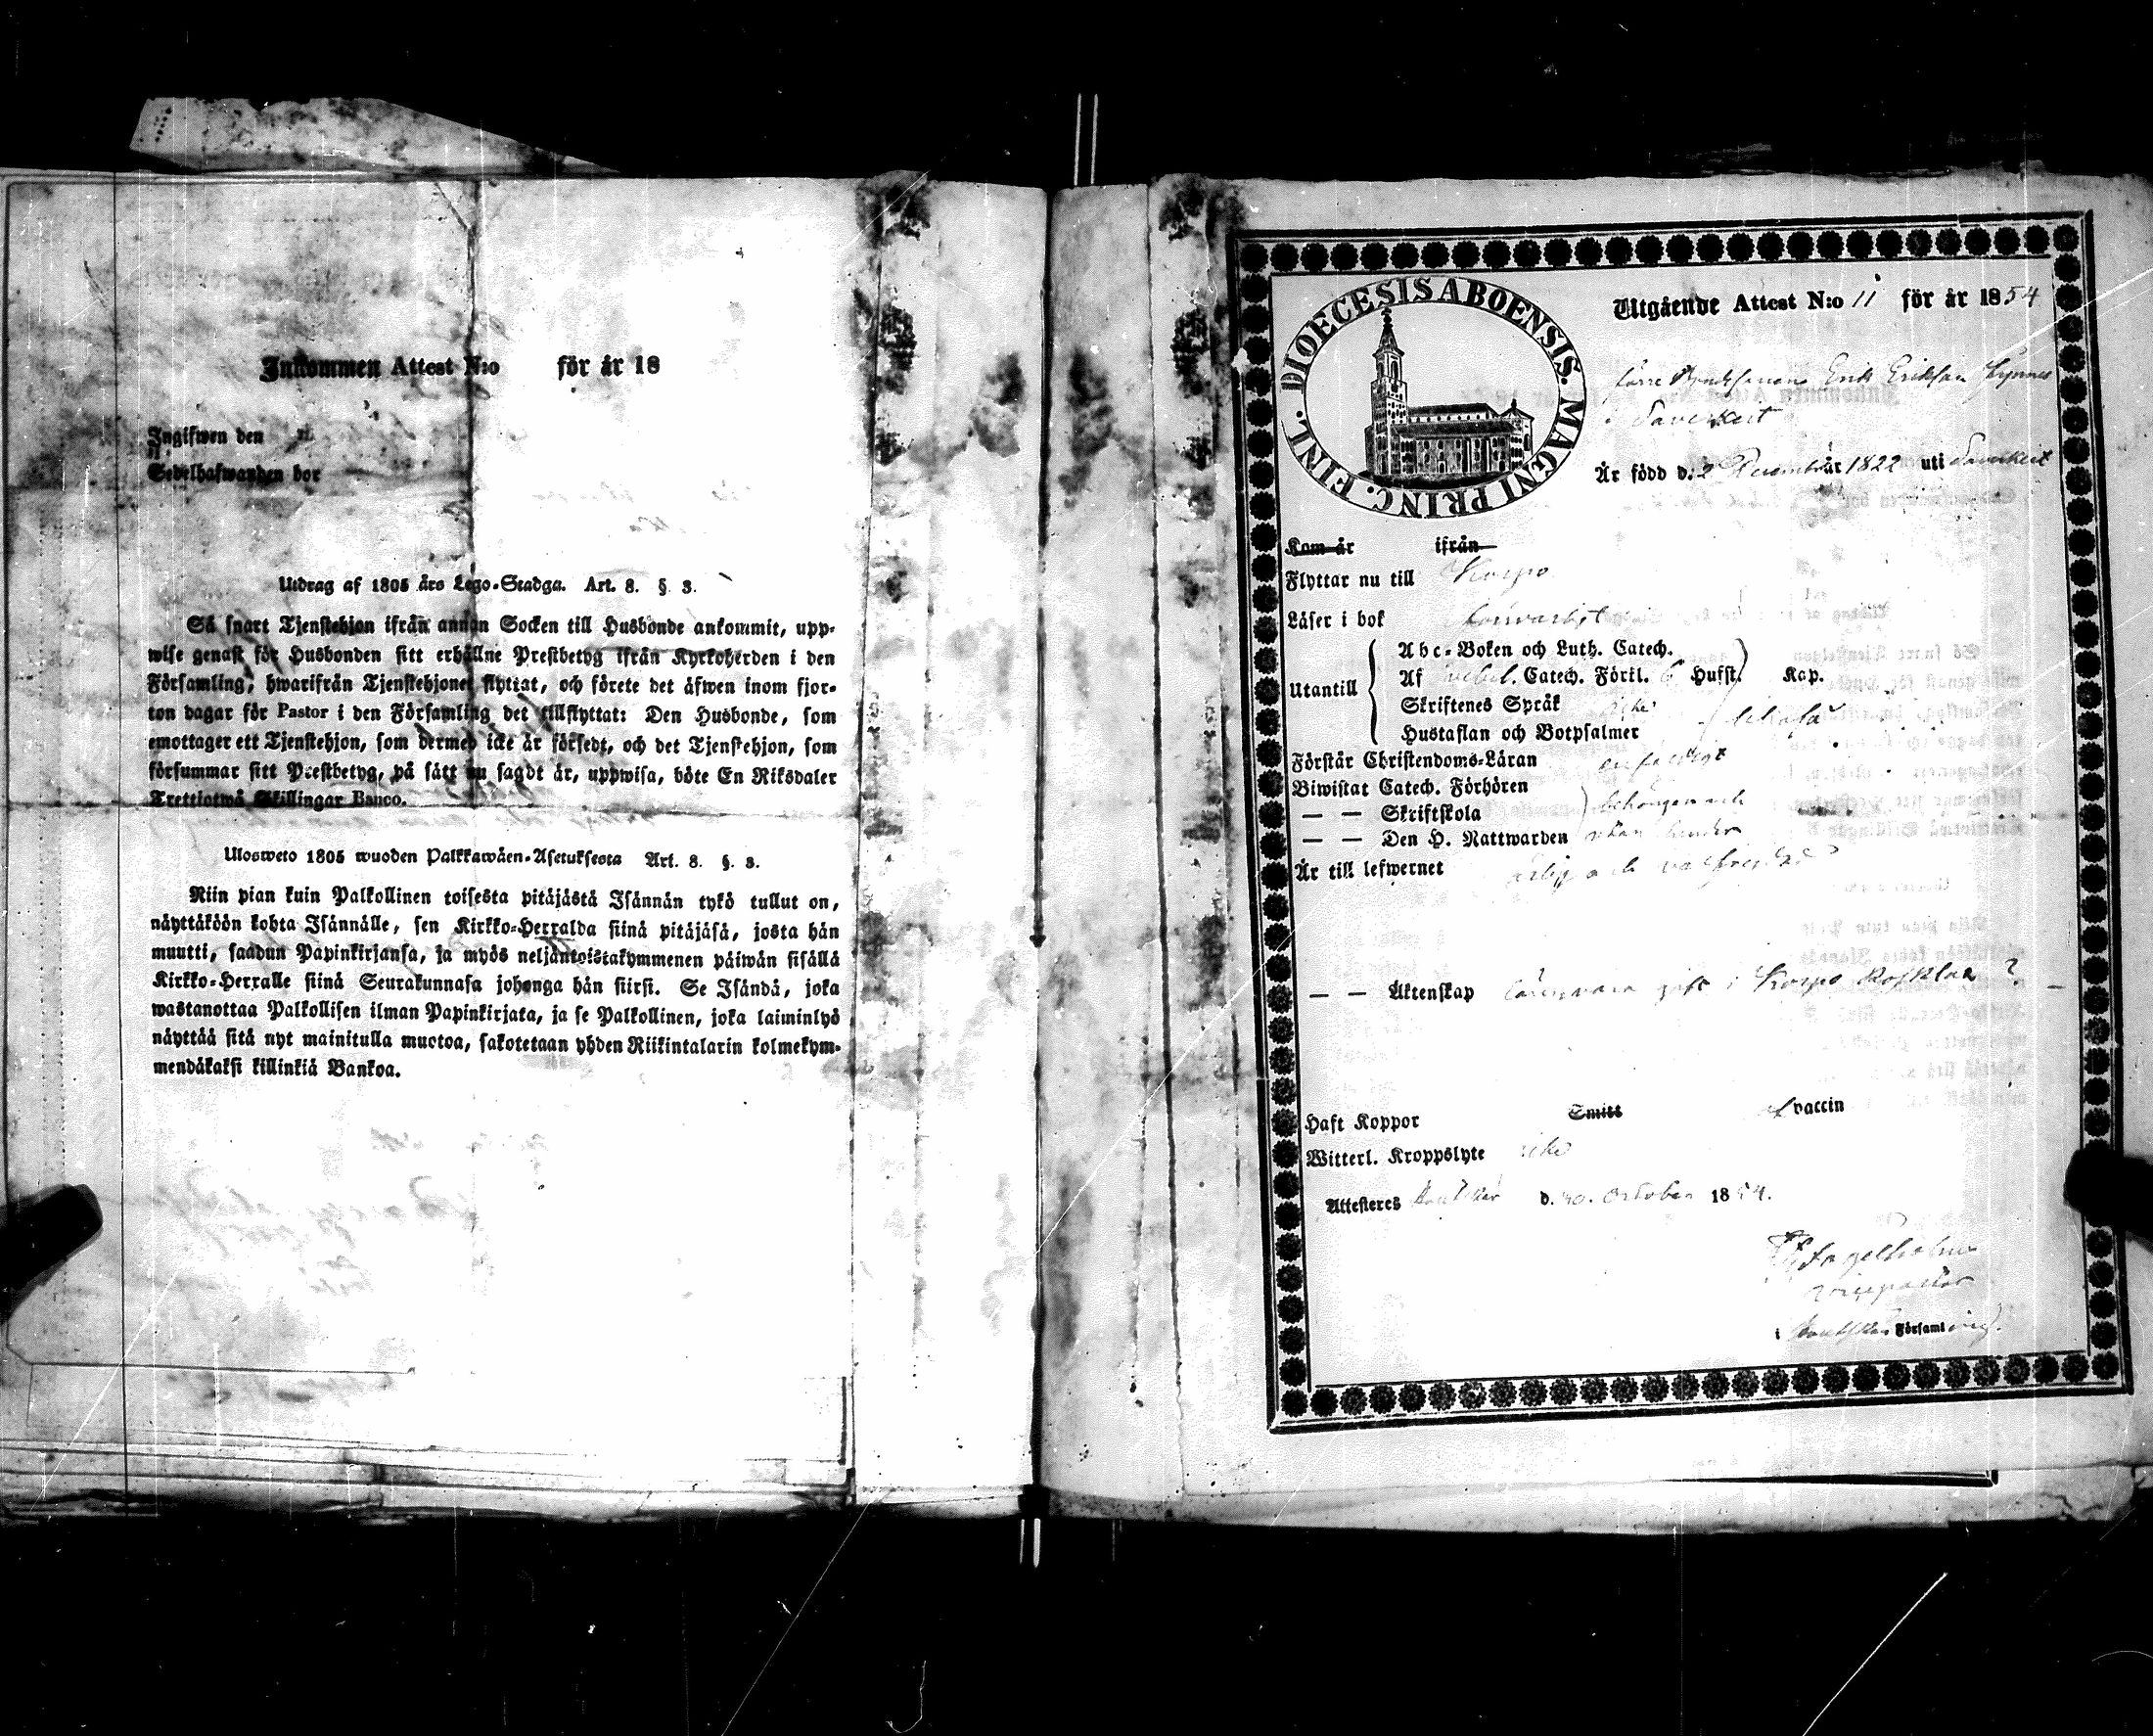 Inkommen Attest N:o för år 18
Ingifwen den
Sedelhafwanden bor
Utdrag af 1805 års Lego-Stadga. Art. 8. § 3.
Så snart Tjenstehjon ifrån annan Socken till Husbonde ankommit, upp-
wise genast för Husbonden sitt erhållne Prestbetyg ifrån Kyrkoherden i den
Församling, hwarifrån Tjenstehjonet flyttat, och förete det äfwen inom fjor-
ton dagar för Pastor i den Församling det tillflyttat: Den Husbonde, som
emottager ett Tjenstehjon, som dermed icke är försedt, och det Tjenstehjon, som
försummar sitt Prestbetyg, på sätt nu sagdt är, uppwisa, böte En Riksdaler
Trettiotwå Skillingar Banco.
Ulosweto 1805 wuoden Palkkawäen-Asetuksesta Art. 8. §. 3.
Niin pian kuin Palkollinen toisesta pitäjästä Isännän tykö tullut on,
näyttäköön kohta Isännälle, sen Kirkko-Herralda siinä pitäjäsä, josta hän
muutti, saadun Papinkirjansa, ja myös neljäntoistakymmenen päiwän sisällä
Kirkko-Herralle siinä Seurakunnasa johonga hän siirsi. Se Isändä, joka
wastanottaa Palkollisen ilman Papinkirjata, ja se Palkollinen, joka laiminlyö
näyttää sitä nyt mainitulla muotoa, sakotetaan yhden Riikintalarin kolmekym-
mendäkaksi killinkiä Bankoa.
DIOECESIS ABOENSIS. MAGNI PRINC. FINL.
Utgående Attest N:o 11 för år 1854
Erik Eriksson
Är född d. 2 December år 1822 uti
Kom år ifrån
Flyttar nu till Korpo
Läser i bok försvarligt
Abc-Boken och Luth. Catech.
Utantill Af Catech. Förkl. 6 Hufst. Kap.
Skriftenes Språk
Hustaflan och Botpsalmer
Förstår Christendoms-Läran
Biwistat Catech. Förhören
— — Skriftskola behörigen och
— — Den H. Nattwarden utan hinder
Är till lefwernet ärlig och välfrejdad
— — Äktenskap gift i Korpo
Haft Koppor Smitt vaccin
Witterl. Kroppslyte icke
Attesteres Houtskär d. 30. October 1854.
Fagelholm
vicepastor
i Houtskär Församling.